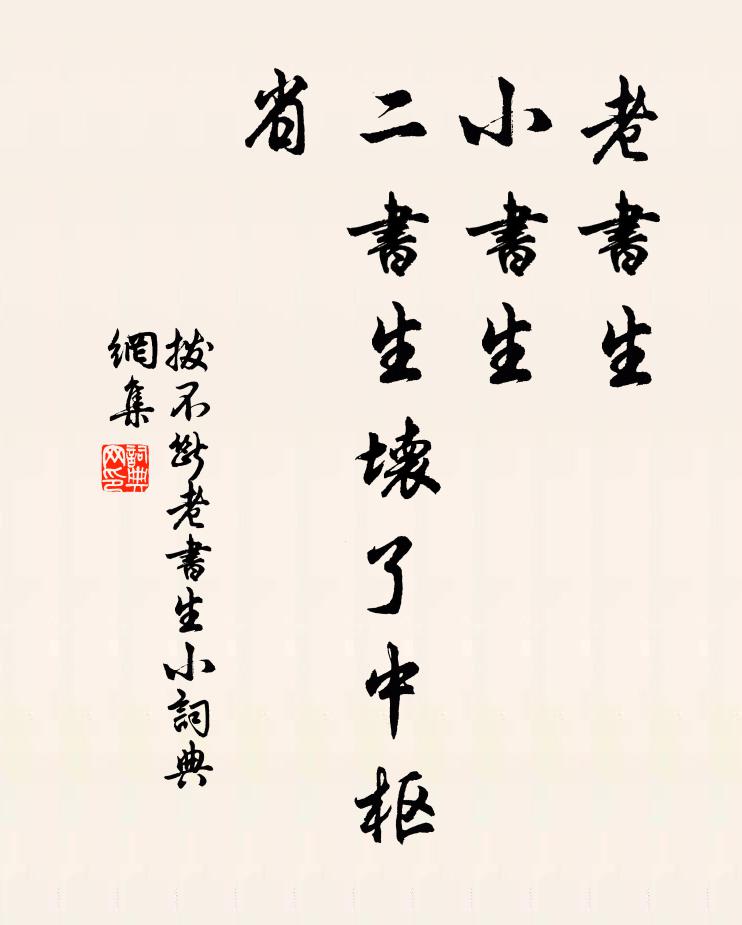 老書生
小書生
二書生壞了中枢
省
拨不斷老書生小詞典
網集
詞典
网印